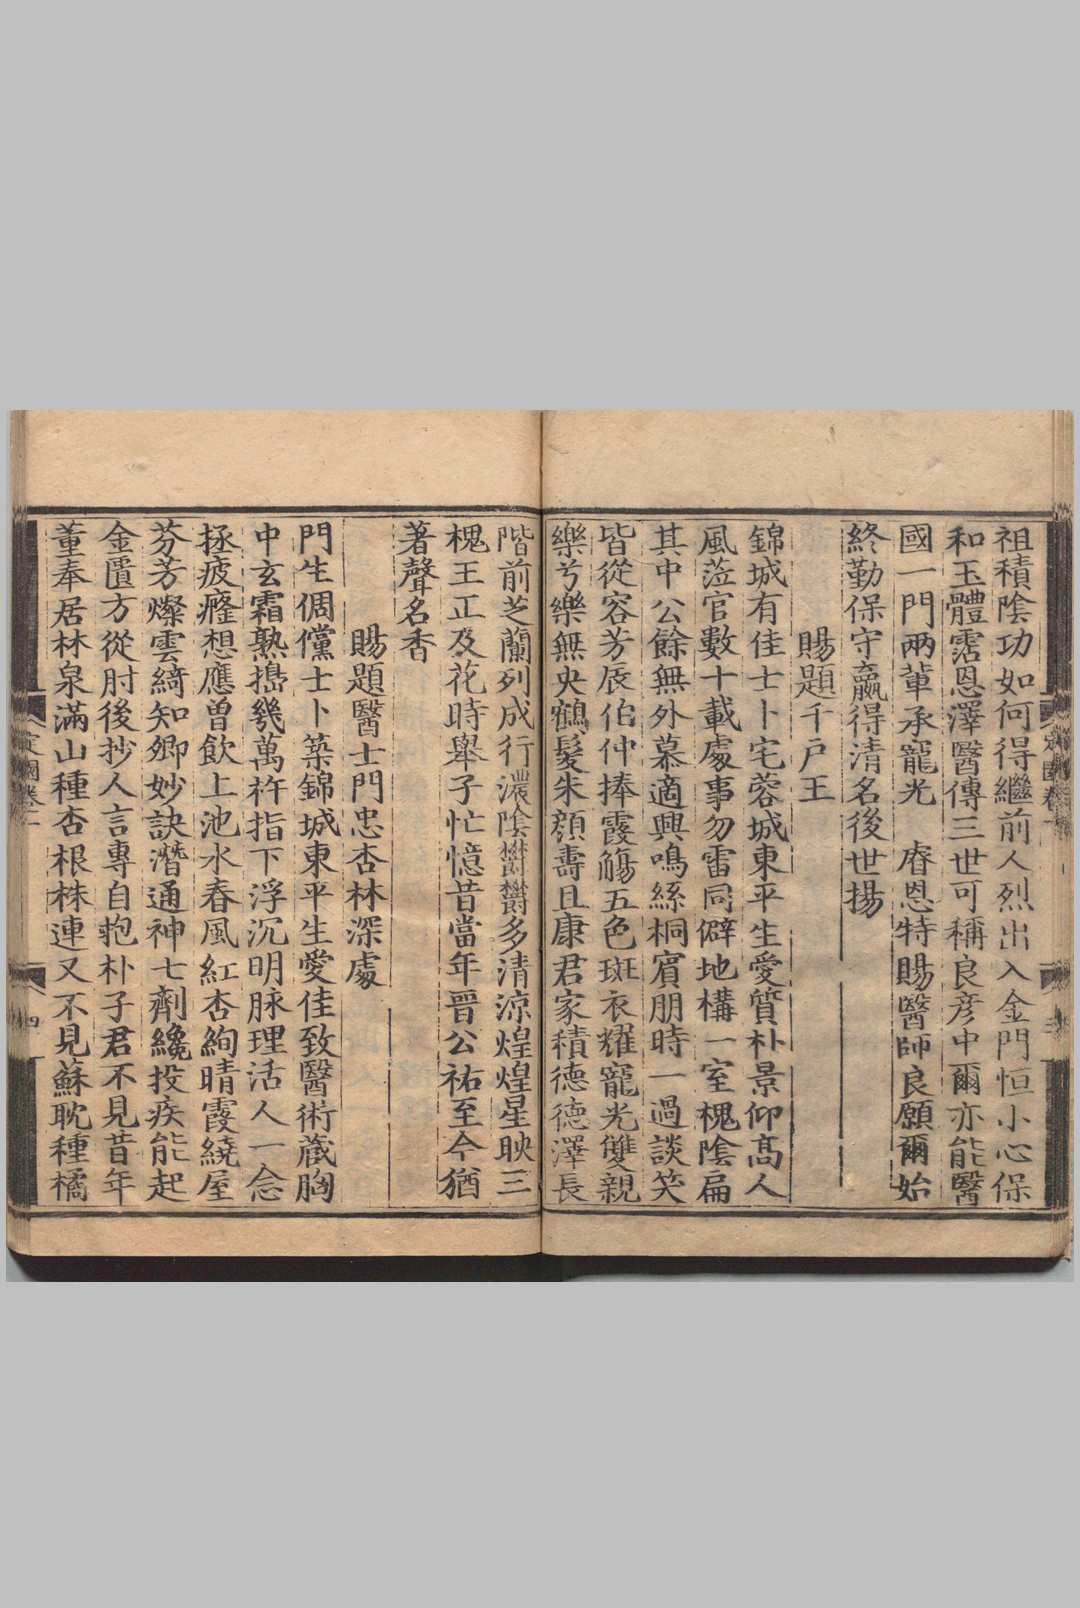 祖積陰功如何得繼前人烈出入金門恒小心保
和玉體霑恩澤醫傳三世可稱良彦中爾亦能醫
國一門兩輩承寵光 睿恩特賜醫師良願爾始
終勤保守贏得清名後世揚
賜題千户王
錦城有佳士卜宅蓉城東平生愛質朴景仰髙人
風蒞官數十載處事勿雷同僻地構一室槐陰扁
其中公餘無外慕適興鳴絲桐賓朋時一過談笑
皆從容芳辰伯仲捧霞觴五色斑衣耀寵光雙親
樂兮樂無央鶴髮朱顔壽且康君家積德德澤長
階前芝蘭列成行濃陰欝欝多清涼煌煌星映三
槐王正及花時舉子忙憶昔當年晋公祐至今猶
著聲名香
賜題醫士門忠杏林深處
門生倜儻士卜築錦城東平生愛佳致醫術蔵胸
中玄霜熟搗幾萬杵指下浮沉明脉理活人一念
拯疲癃想應曽飲上池水春風紅杏絢晴霞繞屋
芬芳燦雲綺知卿妙訣潛通神七劑纔投疾能起
金匱方從肘後抄人言專自抱朴子君不見昔年
董奉居林泉滿山種杏根株連又不見蘇耽種橘
定園卷一
四